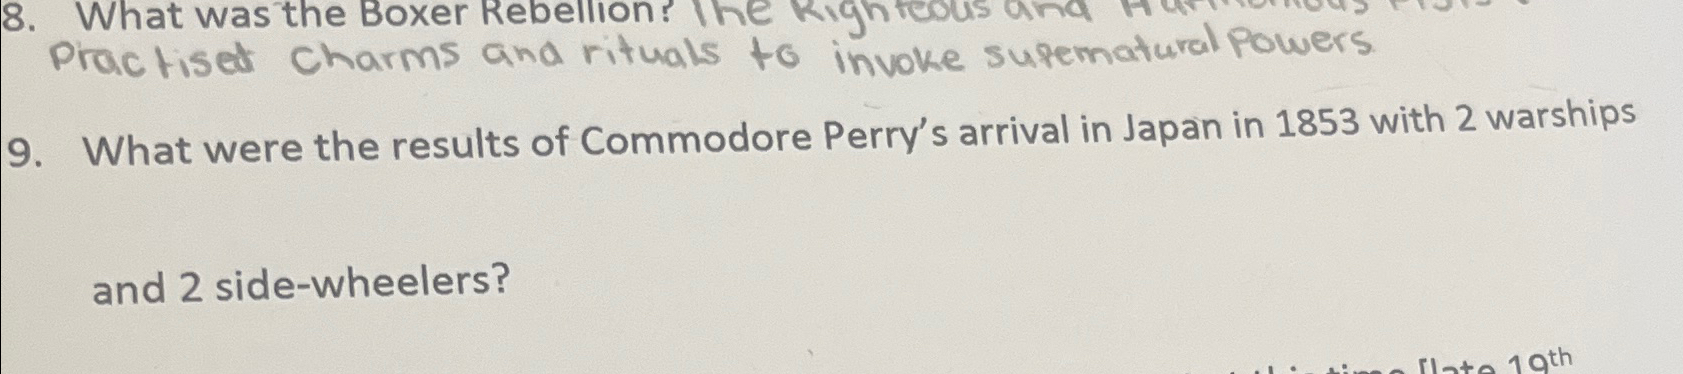 8. What was the Boxer Rebellion? The Righteous and
Practised Charms and rituals to invoke supernatural Powers
9. What were the results of Commodore Perry's arrival in Japan in 1853 with 2 warships
and 2 side-wheelers?
19th